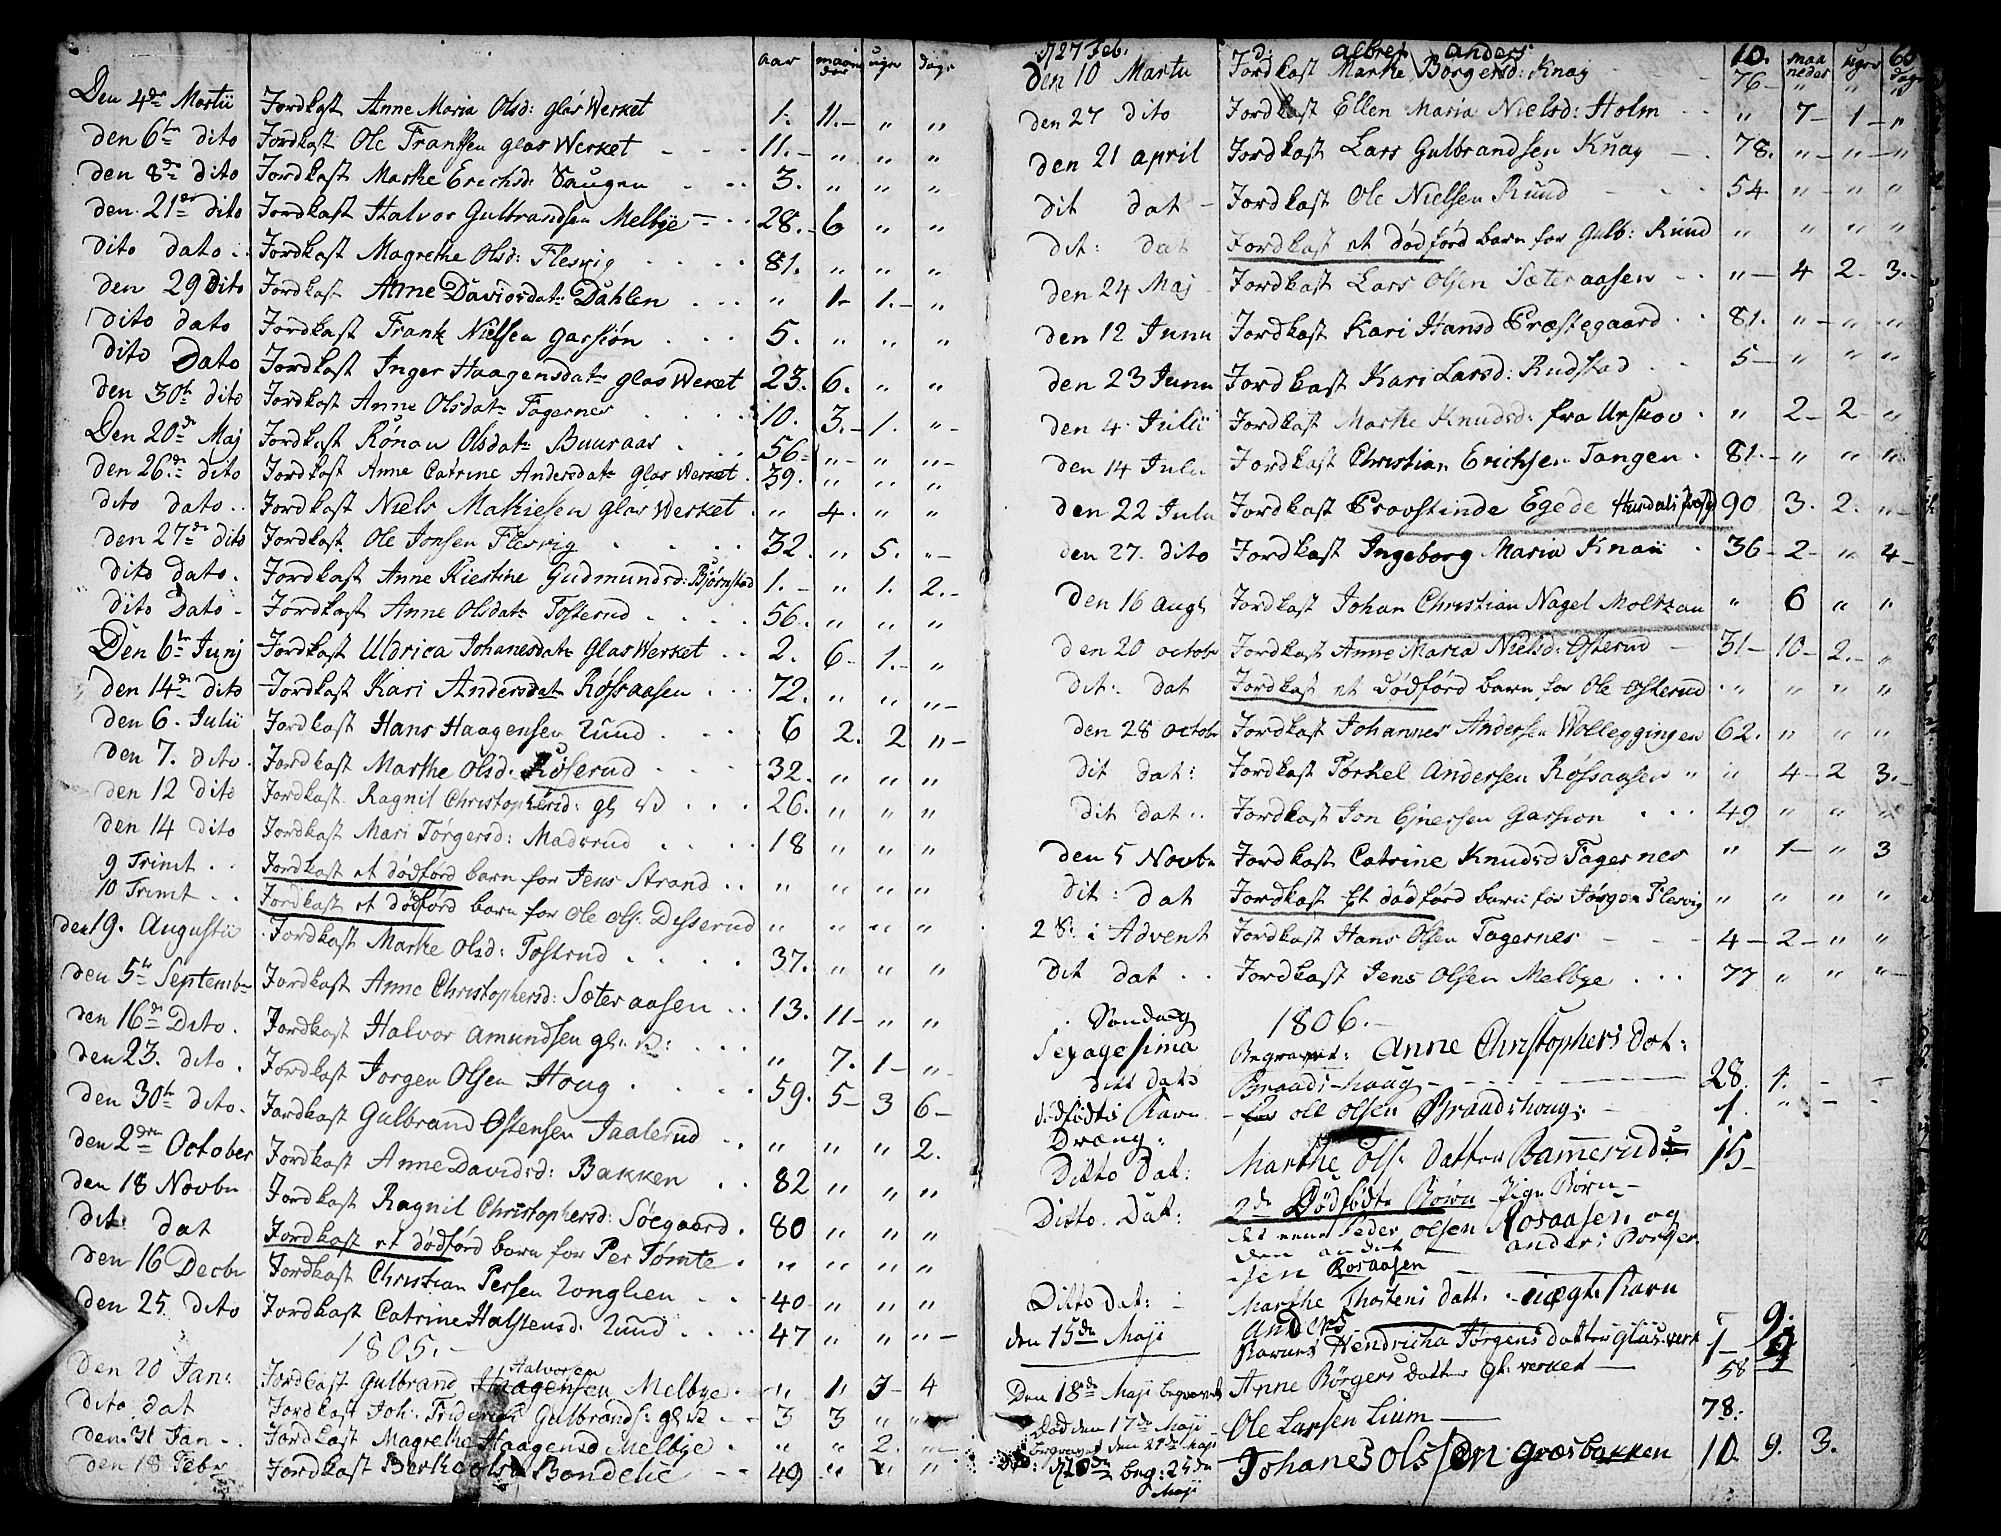 aar maane der uger dage
Den 4de Martii Jordkast Anne Maria Olsd: glas Werket 1. 11.- „ „
den 6te dito Jordkast Ole Franssen glas Werket - - - 11.- „ „ „
den 8de dito Jordkast Marthe Erichsd: Haugen . . . 3. „ „ „
den 21de dito Jordkast Halvor Gulbrandsen Melbye - . . 28.- 6 „ „
dito dato .. Jordkast Magrethe Olsd: Flesvig . . . . 81. „ „ „
den 29 dito Jordkast Anne Davidsdatr Dahlen . . . „ 1- 1.- „
dito dato Jordkast Frank Nielsen Garsiøn . . . 5. „ „ „
dito Dato Jordkast Inger Haagensdatr glas Werket 23. 6. „ „
den 30te dito Jordkast Anne Olsdatr Fagernes . . . . 10. 3.- 1. „-
Den 20de Maj Jordkast Rønau Olsdatr Buuraas . . . 56- „- „ „-
den 26de dito Jordkast Anne Catrine Andersdatr Glas Werket . 39. „ „ „
dito dato .. Jordkast Niels Mathiesen glas Werket . „ 4. „ „
den 27de dito Jordkast Ole Jonsen Flesvig . . . . 32. „ 5. „-
dito dato. Jordkast Anne Kiestine Gudmundsd: Bjørnstad 1.- „ 1. 2.-
dito Dato - Jordkast Anne Olsdatr Tosterud . . . . 56. „ „ „
Den 6te Junj Jordkast Uldrica Johanesdatr Glas Werket . . 2. 6- 1.- „
den 14de dito Jordkast Kari Andersdatr Røssaasen . . . 72. „ „ „-
den 6. Julii Jordkast Hans Haagensen Ruud . . . . 6 2. 2 „-
den 7. dito. Jordkast Marthe Olsd. Røserud . . . . 32. „ „ „
den 12 dito Jordkast Ragnil Christophersd: gl W . . . 26. „ „ „
den 14 dito Jordkast Mari Torgersd: Madsrud . . . . 18 „ „ „
9 Trinit . . Jordkast et dødførd barn for Jens Strand .. „ „ „ „
10 Trinit . . Jordkast et dødførd barn for Ole Ols: Disserud „ „ „ „
den 19. Augustii Jordkast Marthe Olsd: Tostrud . . . . 37. „ „ „
den 5te Septembr Jordkast Anne Christophersd: Sæteraasen . . 13. 11- „ „
den 16de Dito. Jordkast Halvor Amundsen gl: W: . . . „ 7. 1- „
den 23. dito. Jordkast Jorgen Olsen Houg . . . . 59. 5- 3 6-
den 30te dito. Jordkast Gulbrand Østensen Jaalerud . . „ „ „ 2.
den 2den October Jordkast Anne Davidsd: Bakken . . 82 „ „ „
den 18 Novbr Jordkast Ragnil Christophersd: Søegaard . 80 „ „ „
dit: dat Jordkast et dødførd barn for Per Tømte . „ „ „ „
den 16 Decbr Jordkast Christian Persen . . 40- „ „ „
den 25. dito Jordkast Catrine Halstensd. Ruud . . . . 47 „ „ „-
1805.-
Den 20 Jan: Jordkast Gulbrand Halvorsen Melbye . „ 1 „ 3- 4
dito dat Jordkast Joh: Friderich Gulbrands: gl W - - 3 3 „ „
den. 31 Jan - . Jordkast Magrethe Haagensd Melbye . „ „ 2. „-
den 18 Febr Jordkast Berthe Olsd Bondelie - - 49 „ „ „
27 Feb. d: Albret Anders 10. maa neder uger 60 dage
den 10 Martii Jordkast Marthe Børgersd: Knay 76- „ „ „
den 27 dito Jordkast Ellen Maria Nielsd: Holm . . „ 7- 1- „
den 21 april Jordkast Lars Gulbrandsen Knay - . 78. „- „- „
dit dat - Jordkast Ole Nielsen Ruud . . . 54 „- „ „
dit: dat Jordkast et dødførd barn for Gulb: Ruud „ „ „ „
den 24 Maj - Jordkast Lars Olsen Sæteraasen - . „- 4 2- 3.-
den 12 Junii Jordkast Kari Hansd Præstegaard . . 81. „- „- „
den 23 Junii Jordkast Kari Larsd: Rudstad . . 5- „ „ „
den 4. Julii Jordkast Marthe Knudsd: fra Urskov . „ 2- 2- „
den 14 Julii Jordkast Christian Erichsen Tangen . 81.- „ „ „
den 22 Julii Jordkast Provstinde Egede Hurdals præstg 90 3. 2. „-
den 27. dito Jordkast Ingeborg Maria Knaii . 36- 2- „ 4-
den 16 augs Jordkast Johan Christian Nagel Moltzau „ 6 „ „
den 20 octobr Jordkast Anne Maria Nielsd: Østerud - 31- 10- 2.- „
dit:- dat Jordkast et dødførd barn for Ole Østerud . „ „ „ „
den 28 octobr Jordkast Johannes Andersen Wolleggingen 62. „ „ „
dit dat: Jordkast Torkel Andersen Røssaasen „ „ 4- 2 3.-
dit dat .. Jordkast Jon Ejnersen Garsion . . . 49 „ „ „
den 5 Novbr Jordkast Catrine Knudsd Fagernes „ 1- „ 3
dit: dat Jordkast Et dødførd barn for Jørgen Flesvig „ „ „ „
2 S: i Advent Jordkast Hans Olsen Fagernes - - - 4- 2- „ „
dit dat . . Jordkast Jens Olsen Melbye . . . 77 „ „ „-
Søndag 1806.-
Sexagesima Begravet: Anne Christophers Dat:
ditt dato Braadshaug - - - 28. 4. - -
dødfødte Barn for Ole Olsen Braadshoug: - 1. „ - -
Dræng:
Ditto Dat: Marthe Ols: datter Bamerud 15-
Ditto. Dat: 2de Dødfødte Børn - Pige Børn -
det eene Peder Olsen Rosaasen og
den andet - Anders Borger
sen Rosaasen
Ditto Dat: - Marthe Thostens datt. - uægte Barn
Anders
den 15de Maji Barnet Hendricha Jørgens datter Glasverk 1- 9.
Den 18de Maji begravet Anne Børgers datter gl: verket - 58
Død den 17de Maji - Ole Larsen Lium - 78.
begravet den 24de Maji
Død: d 20de beg: 25de Maji Johanes Olsen Græsbakken 10. 9. 3.